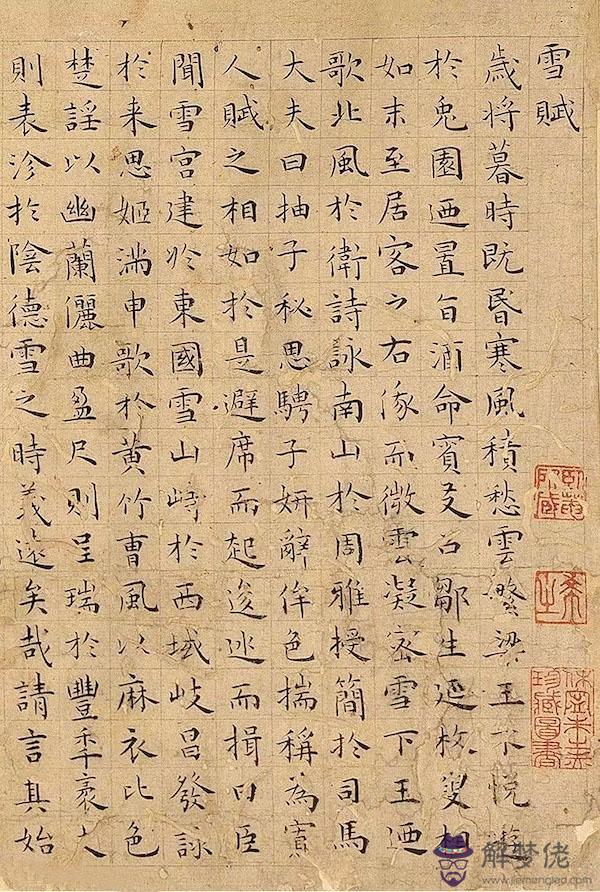 雪賦
歲将暮時既昏寒風積愁雲繁梁王不悅遊
於兔園廼置旨酒命賓友召鄒生延枚叟相
如末至居客之右俄而微雲凝密雪下王廼
歌北風於衛詩詠南山於周雅授簡於司馬
大夫曰抽子秘思騁子妍辭侔色揣稱為寡
人賦之相如於是避席而起逡巡而揖曰臣
聞雪宮建於東國雪山峙於西域岐昌發詠
於来思姬滿申歌於黃竹曹風以麻衣比色
楚謠以幽蘭儷曲盈尺則呈瑞於豐年袤丈
則表沴於陰德雪之時義遠矣哉請言其始
珍藏圖書
解梦佬
www.jiemenglao.com